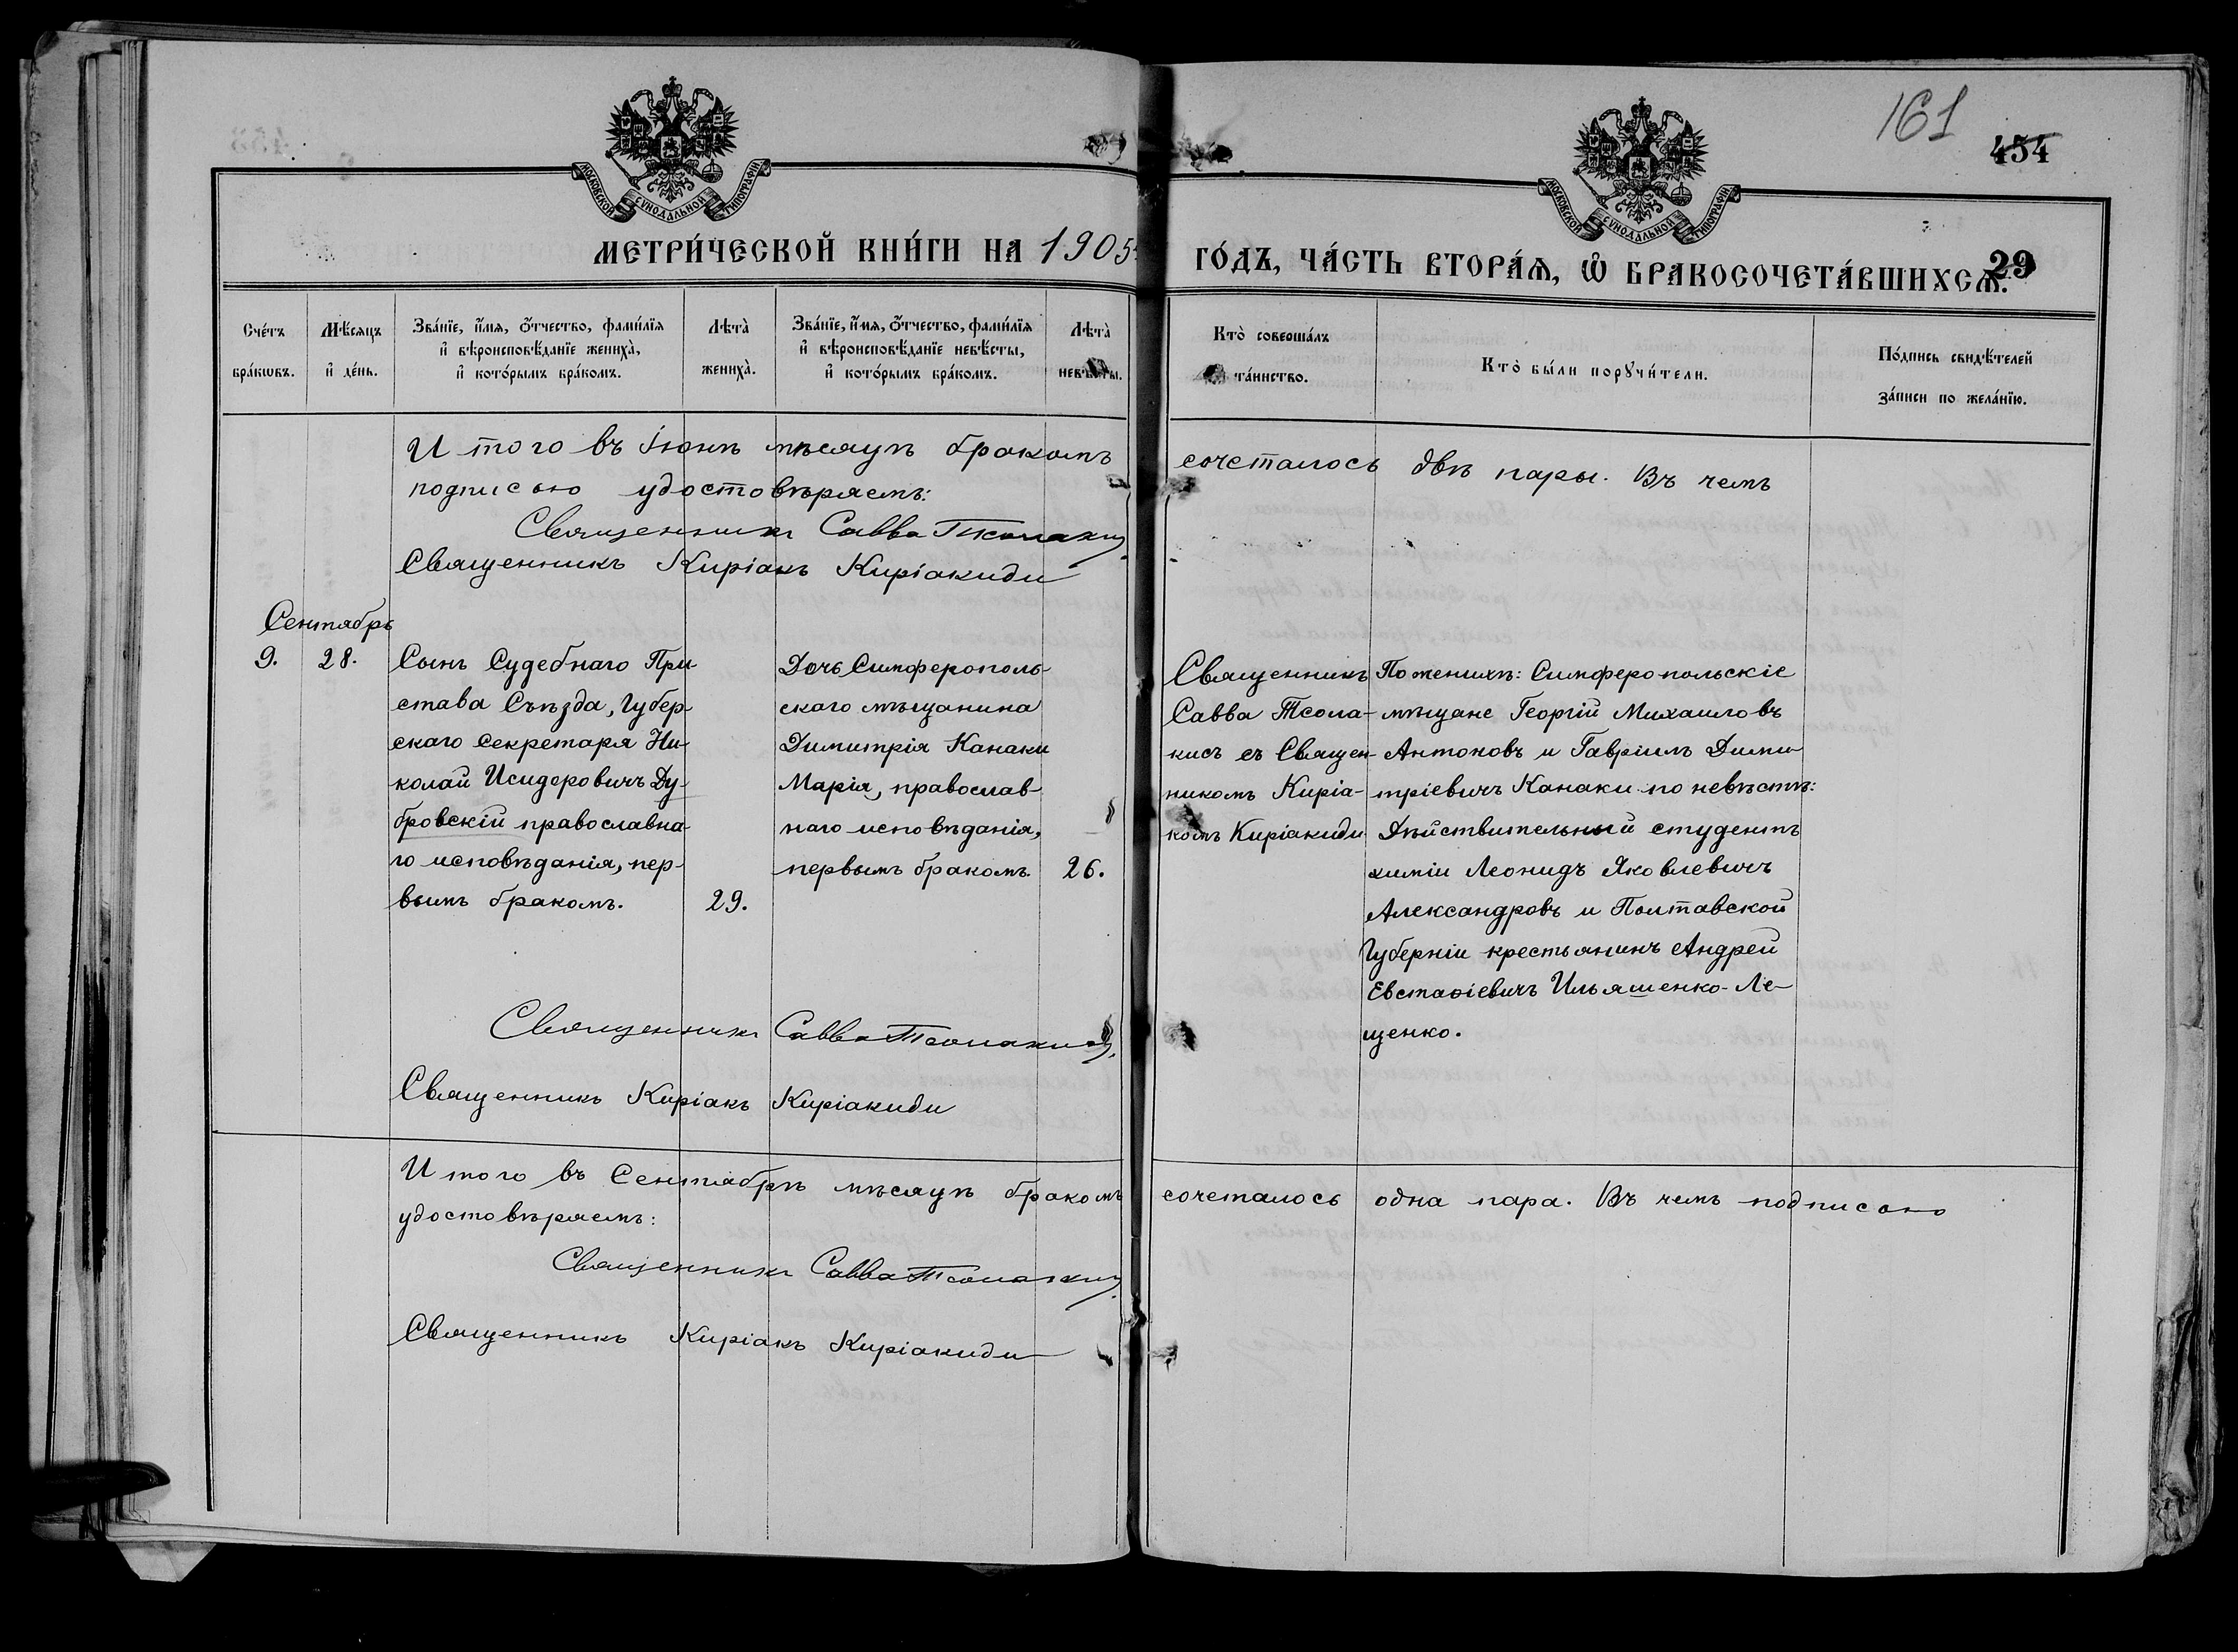 161
454
29
МОСКОВСКОЙ СѴНОДАЛЬНОЙ ТИПОГРАФІИ
МОСКОВСКОЙ СѴНОДАЛЬНОЙ ТИПОГРАФІИ
МЕТРИ́ЧЕСКОЙ КНИ́ГИ НА 1905 ГО́ДЪ, ЧА́СТЬ ВТОРА́Ѧ, Ѽ БРАКОСОЧЕТА́ВШИХСѦ.
Сче́тъ
бра́кѡвъ.
Мѣ́сяцъ
и҆ де́нь.
Зва́нїе, и҆́мя, ѻ҆́тчество, фами́лїя
и҆ вѣроисповѣ́данїе жениха̀,
и҆ кото́рымъ бра́комъ.
Лѣта̀
жениха̀.
Зва́нїе, и҆́мя, ѻ҆́тчество, фами́лїя
и҆ вѣроисповѣ́данїе невѣ́сты,
и҆ кото́рымъ бра́комъ.
Лѣта̀
невѣ́сты.
Кто̀ соверша́лъ
та́инство.
Кто̀ бы́ли порꙋчи́тели.
По́дпись свидѣ́телей
за́писи по жела́нїю.
И того въ Іюнѣ мѣсяцѣ бракомъ сочеталось двѣ пары. Въ чемъ
подписью удостовѣряемъ:
Священникъ Савва Тсолакис
Священникъ Киріакъ Киріакиди
Сентябрь
9. 28.
Сынъ Судебнаго При
става Съѣзда, Губер-
скаго Секретаря Ни-
колай Исидоровичъ Ду-
бровскій православна-
го исповѣданія, пер-
вымъ бракомъ.
29.
Дочь Симферополь-
скаго мѣщанина
Димитрія Канаки
Марія, православ-
наго исповѣданія,
первымъ бракомъ.
26.
Священникъ
Савва Тсола-
кисъ съ Священ-
никомъ Киріа-
комъ Киріакиди
По женихѣ: Симферопольскіе
мѣщане Георгій Михаиловъ
Антоновъ и Гавріилъ Дими-
тріевичъ Канаки по невѣстѣ:
Дѣйствительный студентъ
химіи Леонидъ Яковлевичъ
Александровъ и Полтавской
Губерніи крестьянинъ Андрей
Евстаѳіевичъ Ильяшенко-Ле-
щенко.
Священникъ Савва Тсолакис
Священникъ Киріакъ Киріакиди
И того въ Сентябрѣ мѣсяцѣ бракомъ сочеталось одна пара. Въ чемъ подписью
удостовѣряемъ:
Священникъ Савва Тсолакис
Священникъ Киріакъ Киріакиди